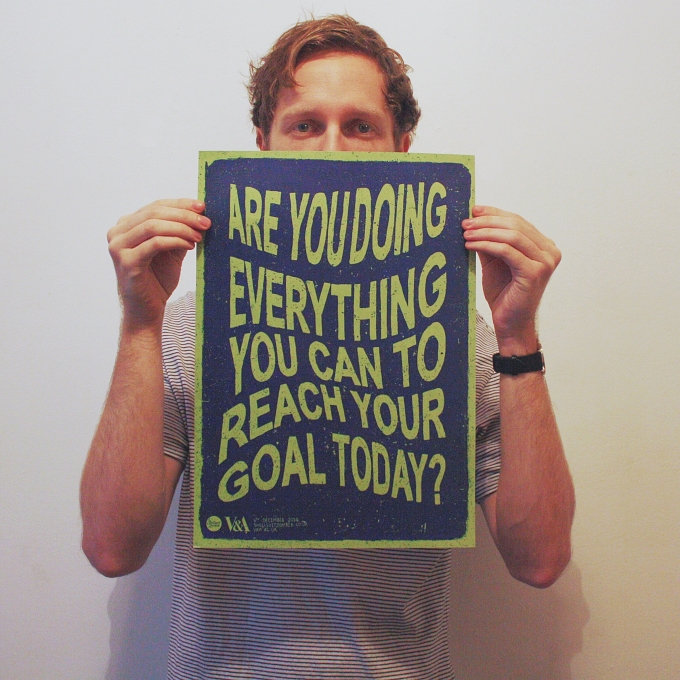 ARE YOU DOING
EVERYTHING
YOU CAN TO
REACH YOUR
GOAL TODAY?
V&A